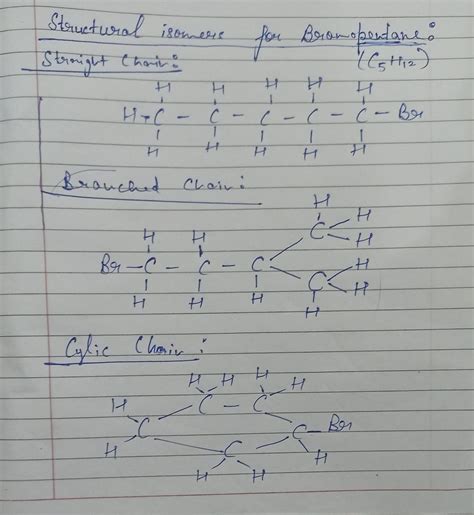 Structural isomers for Bromopentane:
(C5H12)
Straight Chain:
H H H H H
H - C - C - C - C - C - Br
H H H H H
Branched Chain:
H
H H C H
H
Br - C - C - C
H
H H H C H
H
Cylic Chain:
H H H H
H C - C
C C - Br
H C H
H H